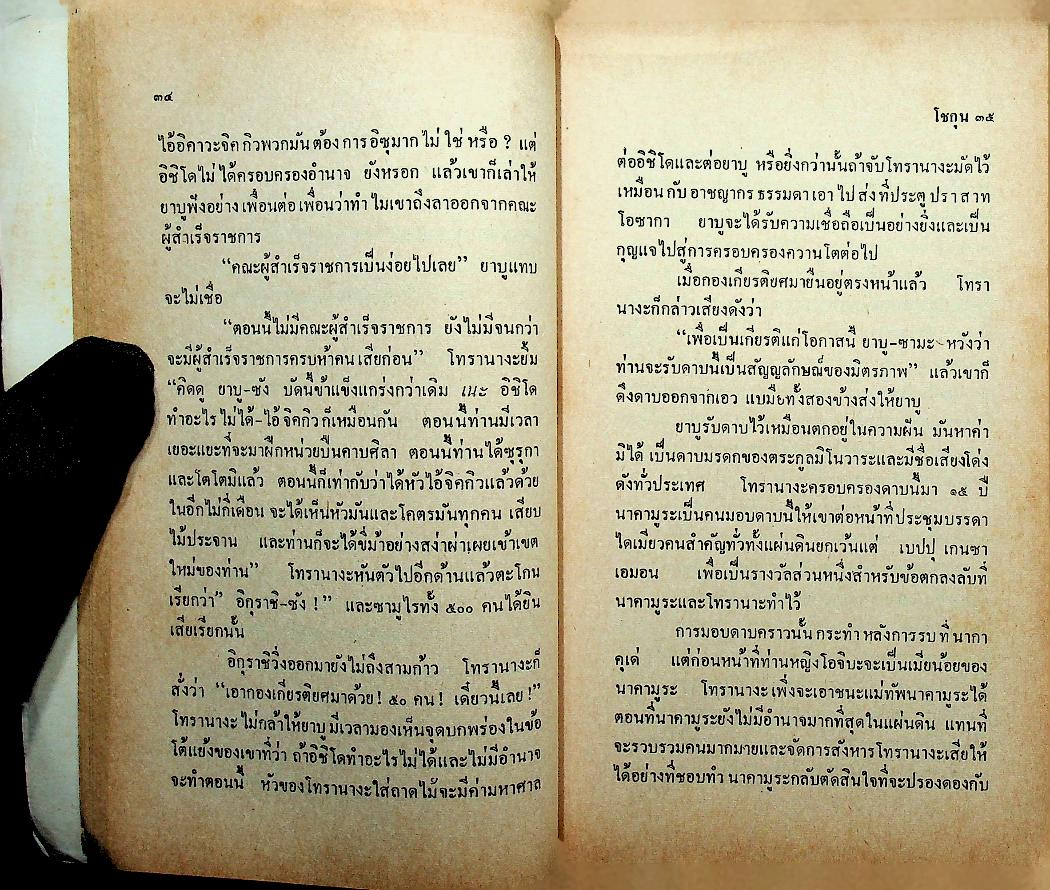 ๓๔
ไอ้อิคาวะจิค กิวพวกมันต้องการอิซุมากไม่ใช่หรือ ? แต่
อิชิโดไม่ได้ครอบครองอำนาจ ยังหรอก แล้วเขาก็เล่าให้
ยาบูฟังอย่างเพื่อนต่อเพื่อนว่าทำไมเขาถึงลาออกจากคณะ
ผู้สำเร็จราชการ
“คณะผู้สำเร็จราชการเป็นง่อยไปเลย” ยาบูแทบ
จะไม่เชื่อ
“ตอนนี้ไม่มีคณะผู้สำเร็จราชการ ยังไม่มีจนกว่า
จะมีผู้สำเร็จราชการครบห้าคนเสียก่อน” โทรานางะยิ้ม
“คิดดู ยาบู-ซัง บัดนี้ข้าแข็งแกร่งกว่าเดิม เนะ อิชิโด
ทำอะไรไม่ได้-ไอ้จิคกิวก็เหมือนกัน ตอนนี้ท่านมีเวลา
เยอะแยะที่จะมาฝึกหน่วยปืนคาบศิลา ตอนนี้ท่านได้ซุรุกา
และโตโตมิแล้ว ตอนนี้ก็เท่ากับว่าได้หัวไอ้จิคกิวแล้วด้วย
ในอีกไม่กี่เดือน จะได้เห็นหัวมันและโคตรมันทุกคน เสียบ
ไม้ประจาน และท่านก็จะได้ขี่ม้าอย่างสง่าผ่าเผยเข้าเขต
ใหม่ของท่าน” โทรานางะหันตัวไปอีกด้านแล้วตะโกน
เรียกว่า” อิกุราชิ-ซัง !” และซามูไรทั้ง ๕๐๐ คนได้ยิน
เสียเรียกนั้น
อิกุราชิวิ่งออกมายังไม่ถึงสามก้าว โทรานางะก็
สั่งว่า “เอากองเกียรติยศมาด้วย! ๕๐ คน! เดี๋ยวนี้เลย!”
โทรานางะไม่กล้าให้ยาบูมีเวลามองเห็นจุดบกพร่องในข้อ
โต้แย้งของเขาที่ว่า ถ้าอิชิโดทำอะไรไม่ได้และไม่มีอำนาจ
จะทำตอนนี้ หัวของโทรานางะใส่ถาดไม้จะมีค่ามหาศาล
โชกุน ๓๕
ต่ออิชิโดและต่อยาบู หรือยิ่งกว่านั้นถ้าจับโทรานางะมัดไว้
เหมือนกับอาชญากรธรรมดาเอาไปส่งที่ประตูปราสาท
โอซากา ยาบูจะได้รับความเชื่อถือเป็นอย่างยิ่งและเป็น
กุญแจไปสู่การครอบครองควานโตต่อไป
เมื่อกองเกียรติยศมายืนอยู่ตรงหน้าแล้ว โทรา
นางะก็กล่าวเสียงดังว่า
“เพื่อเป็นเกียรติแก่โอกาสนี้ ยาบู-ซามะ หวังว่า
ท่านจะรับดาบนี้เป็นสัญญลักษณ์ของมิตรภาพ” แล้วเขาก็
ดึงดาบออกจากเอว แบมือทั้งสองข้างส่งให้ยาบู
ยาบูรับดาบไว้เหมือนตกอยู่ในความฝัน มันหาค่า
มิได้ เป็นดาบมรดกของตระกูลมิโนวาระและมีชื่อเสียงโด่ง
ดังทั่วประเทศ โทรานางะครอบครองดาบนี้มา ๑๕ ปี
นาคามูระเป็นคนมอบดาบนี้ให้เขาต่อหน้าที่ประชุมบรรดา
ไดเมียวคนสำคัญทั่วทั้งแผ่นดินยกเว้นแต่ เบปปุ เกนซา
เอมอน เพื่อเป็นรางวัลส่วนหนึ่งสำหรับข้อตกลงลับที่
นาคามูระและโทรานาะทำไว้
การมอบดาบคราวนั้นกระทำหลังการรบที่นากา
คุเด่ แต่ก่อนหน้าที่ท่านหญิงโอจิบะจะเป็นเมียน้อยของ
นาคามูระ โทรานางะเพิ่งจะเอาชนะแม่ทัพนาคามูระได้
ตอนที่นาคามูระยังไม่มีอำนาจมากที่สุดในแผ่นดิน แทนที่
จะรวบรวมคนมากมายและจัดการสังหารโทรานางะเสียให้
ได้อย่างที่ชอบทำ นาคามูระกลับตัดสินใจที่จะปรองดองกับ